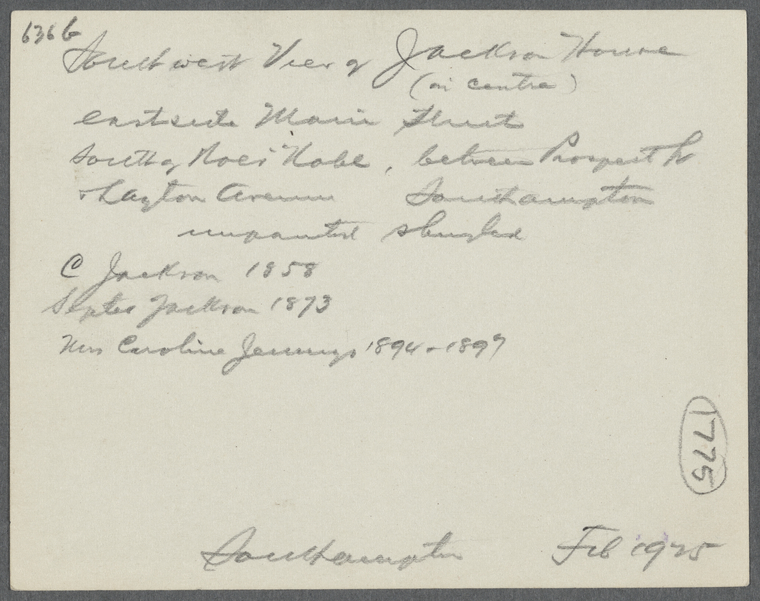 636b
Southwest View of Jackson House
(in centre)
east side Main Street
south of between Prospect St
+ Layton Avenue Southampton
unpainted shingled
C Jackson 1858
Jackson 1873
Mrs Caroline Jennings 1894 - 1897
1775
Southampton Feb 1925